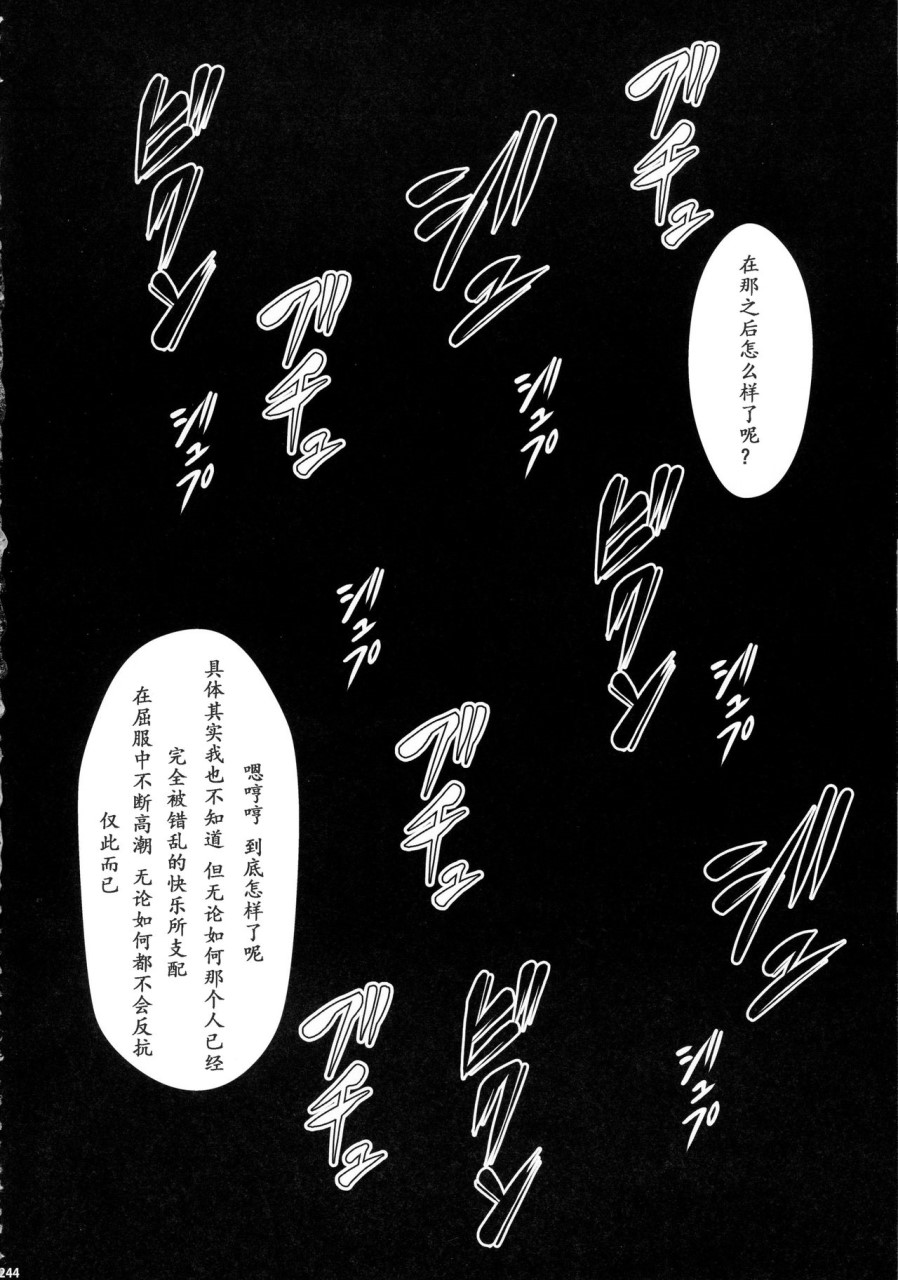 ゲチュ
ビクッ
ジュッ
在那之后怎么样了呢？
ゲチュ
ジュプ
ジュプ
ビクッ
ジュプ
ジュプ
ゲチュ
嗯哼哼 到底怎样了呢
具体其实我也不知道 但无论如何那个人已经
完全被错乱的快乐所支配
在屈服中不断高潮 无论如何都不会反抗
仅此而已
ゲチュ
ジュプ
244